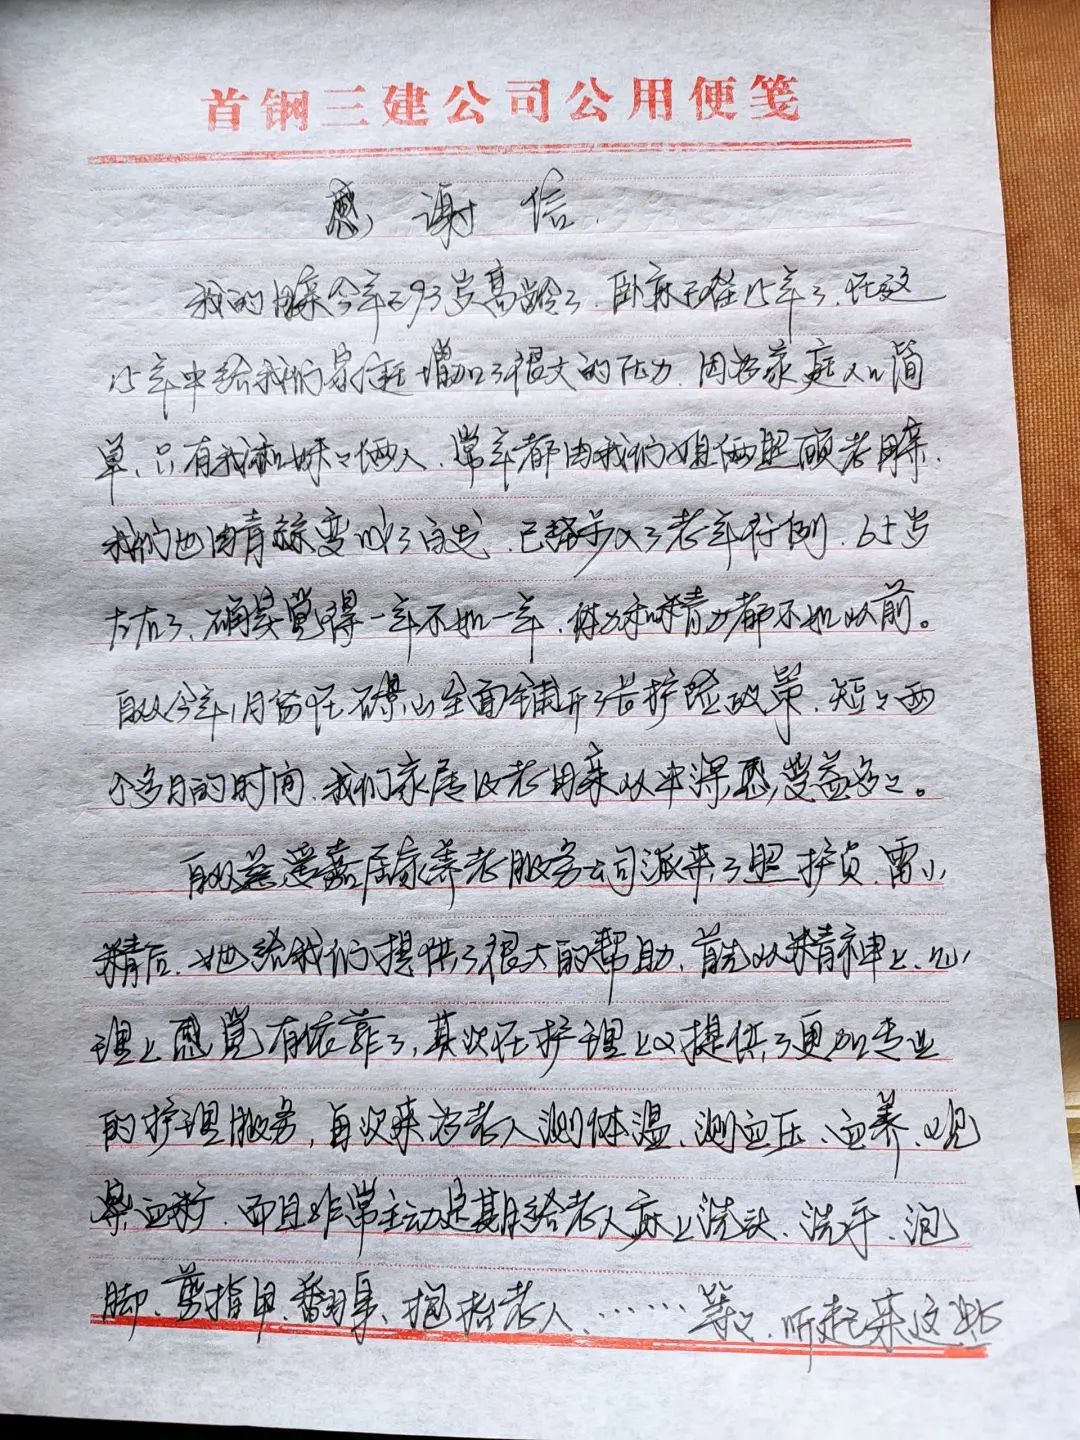 首钢三建公司公用便笺
感谢信
我的母亲今年已93岁高龄了，卧床已经15年了，在这
15年中给我们家庭增加了很大的压力，因为家庭人口简
单，只有我和妹妹俩人，常年都由我们姐俩照顾老母亲，
我们也由青丝变成了白发，已经步入了老年行列，65岁
左右了，确实觉得一年不如一年，体力和精力都不如以前。
自从今年1月份在石景山全面铺开了长护险政策，短短两
个多月的时间，我们家属及老母亲从中深感受益多多。
自从慈爱嘉居家养老服务公司派来了照护员，雷小
精后，她给我们提供了很大的帮助，首先从精神上、心
理上感觉有依靠了，其次在护理上又提供了更加专业
的护理服务，每次来为老人测体温、测血压、血养、观
察血标，而且非常主动定期给老人床上洗头、洗手、泡
脚、剪指甲、翻身、抱抬老人、……等等，听起来这些